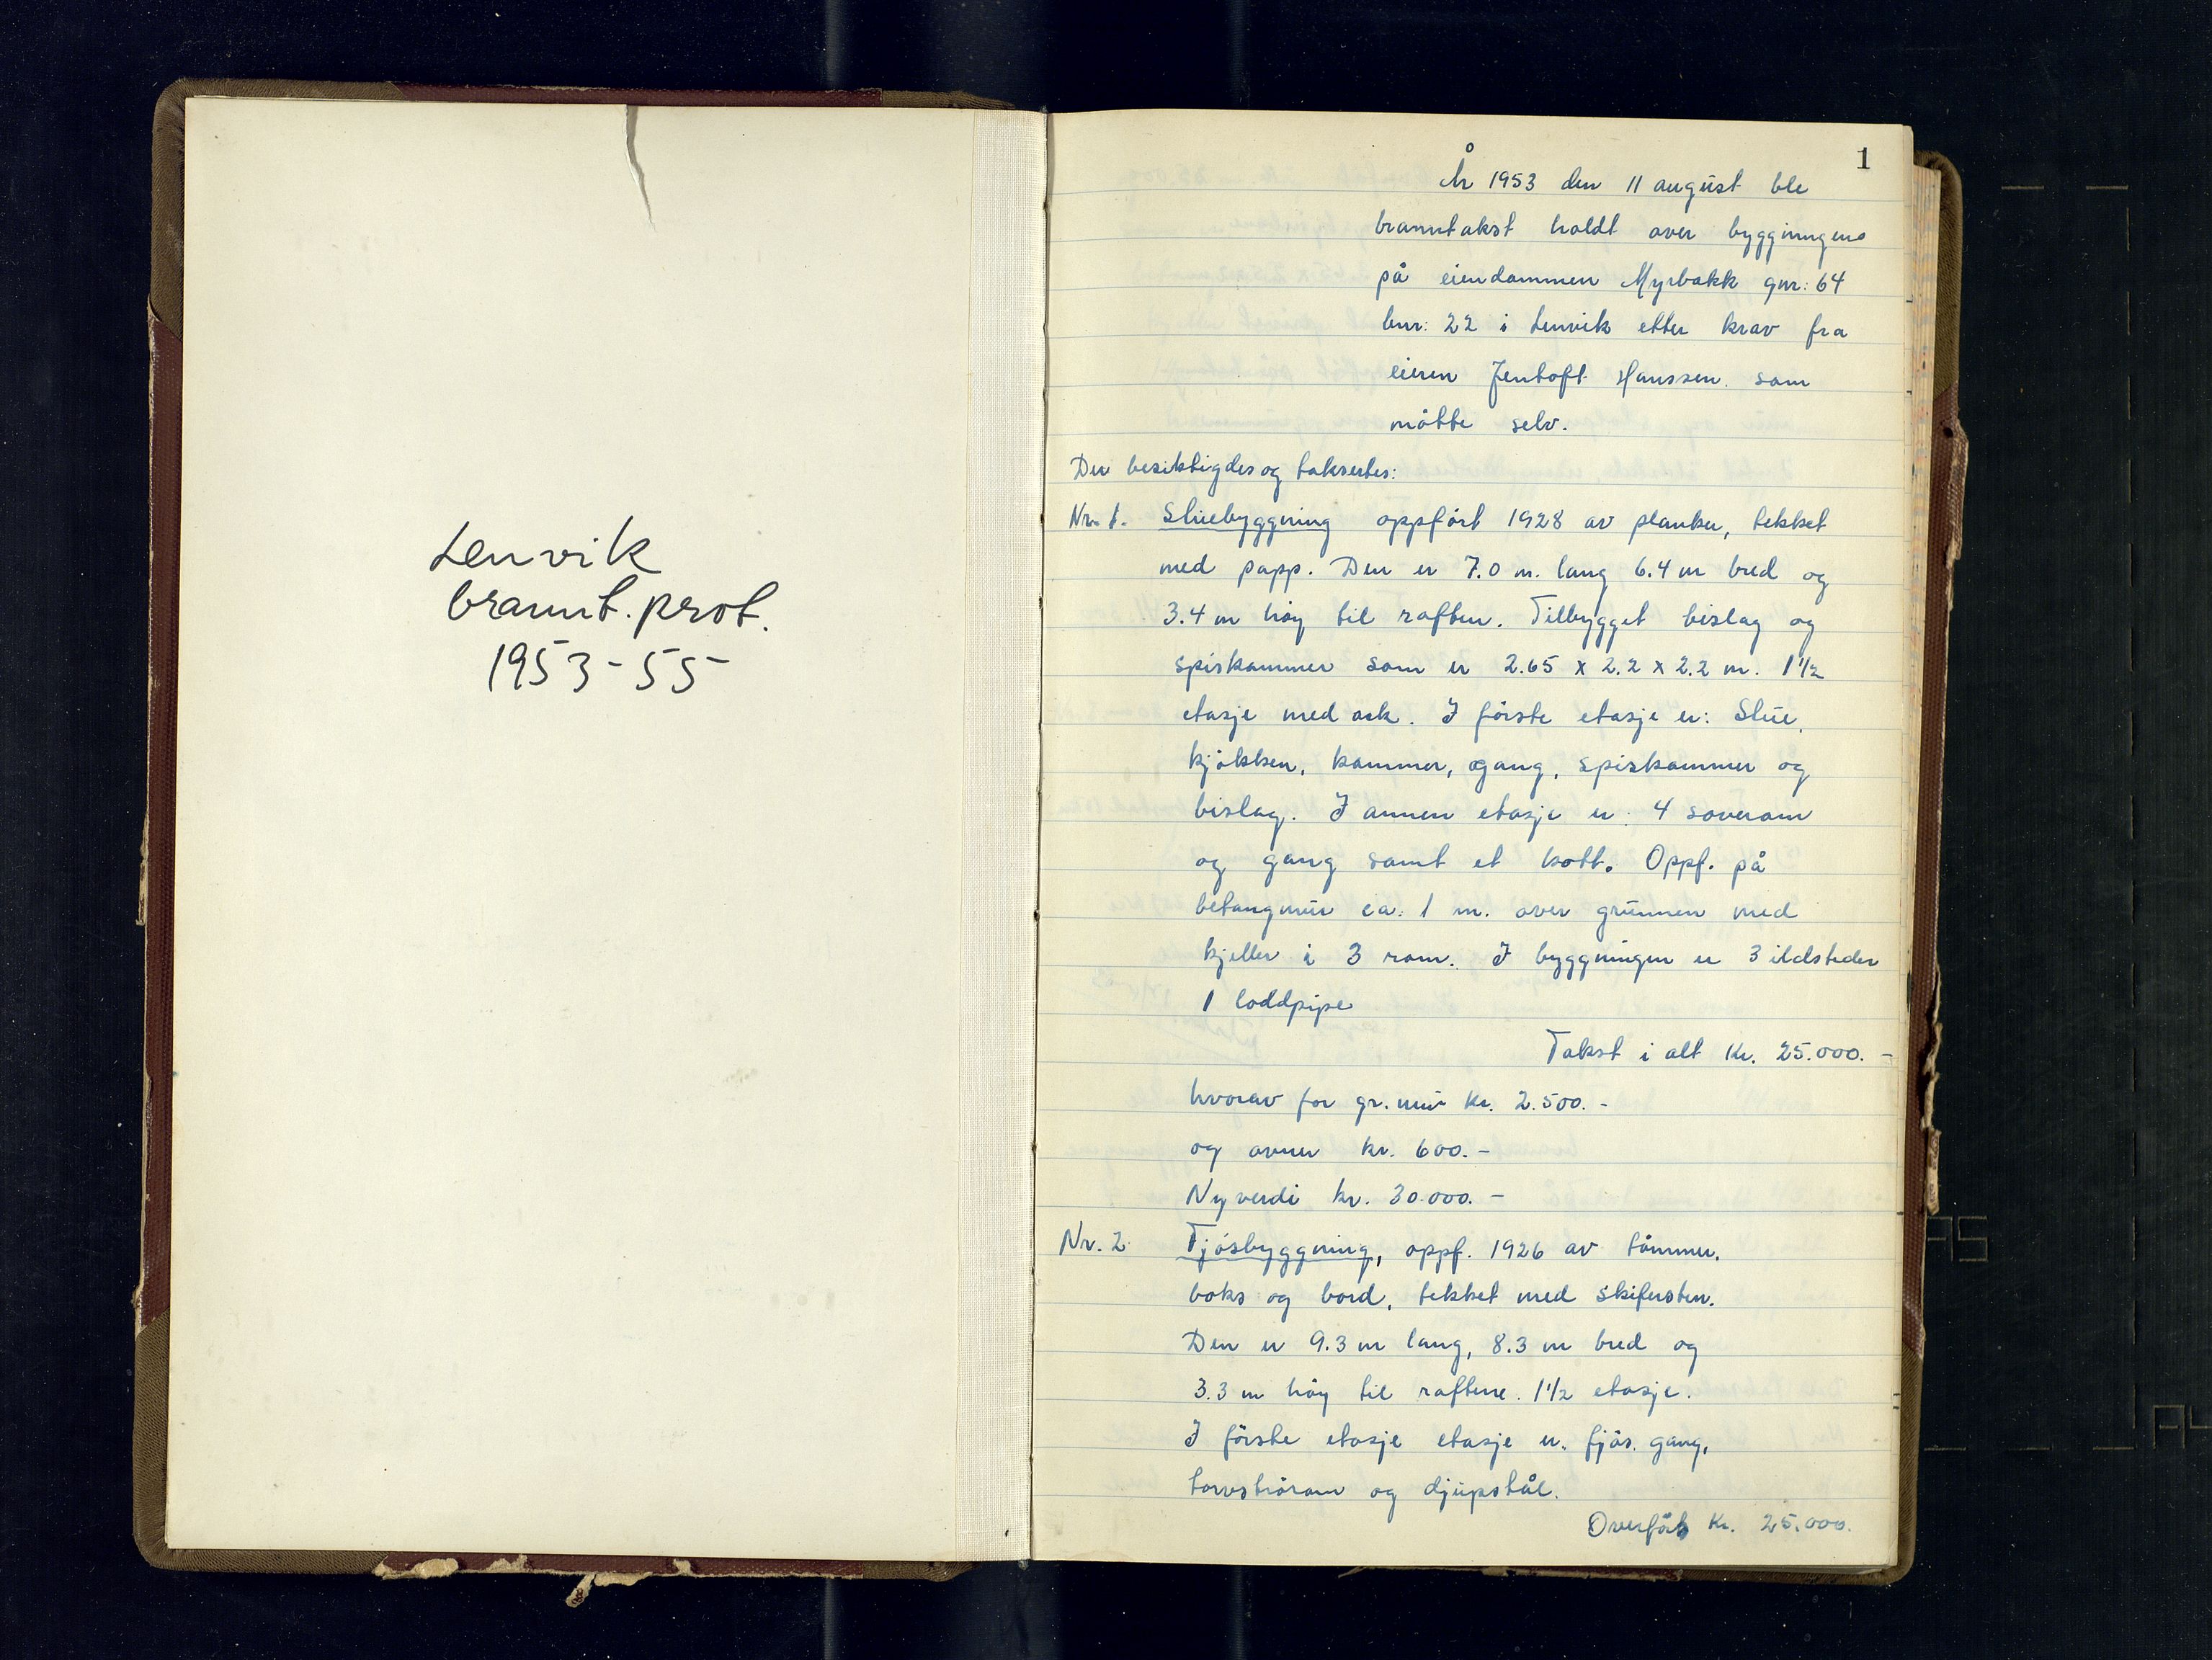 Lenvik
brannt. prot.
1953-55
1
År 1953 den 11 august ble
branntakst holdt over byggningene
på eiendommen Myrbakk gnr: 64
bnr: 22 i Lenvik etter krav fra
eieren Jentoft Hanssen. som
møtte selv.
Der besiktigdes og taksertes:
Nr. 1. Stuebyggning oppført 1928 av planker, tekket
med papp. Den er 7.0 m. lang 6.4 m bred og
3.4 m høy til raften. Tilbygget bislag og
spiskammer som er 2.65 x 2.2 x 2.2 m. 1 1/2
etasje med ark. I første etasje er: Stue,
kjøkken, kammer, gang, spiskammer og
bislag. I annen etasje er: 4 soverom
og gang samt et kott. Oppf. på
betongmur ca. 1 m. over grunnen med
kjeller i 3 rom. I byggningen er 3 ildsteder
1 loddpipe
Takst i alt Kr. 25.000. -
hvorav for gr. mur Kr. 2.500. -
og ovner kr. 600. -
Ny verdi kr. 30.000. -
Nr. 2 Fjøsbyggning, oppf. 1926 av tømmer,
boks og bord, tekket med skifersten.
Den er 9.3 m lang, 8.3 m bred og
3.3 m høy til raftene. 1 1/2 etasje.
I første etasje etasje er. fjøs. gang,
torvstrørom og djupstål.
Overført Kr. 25.000.